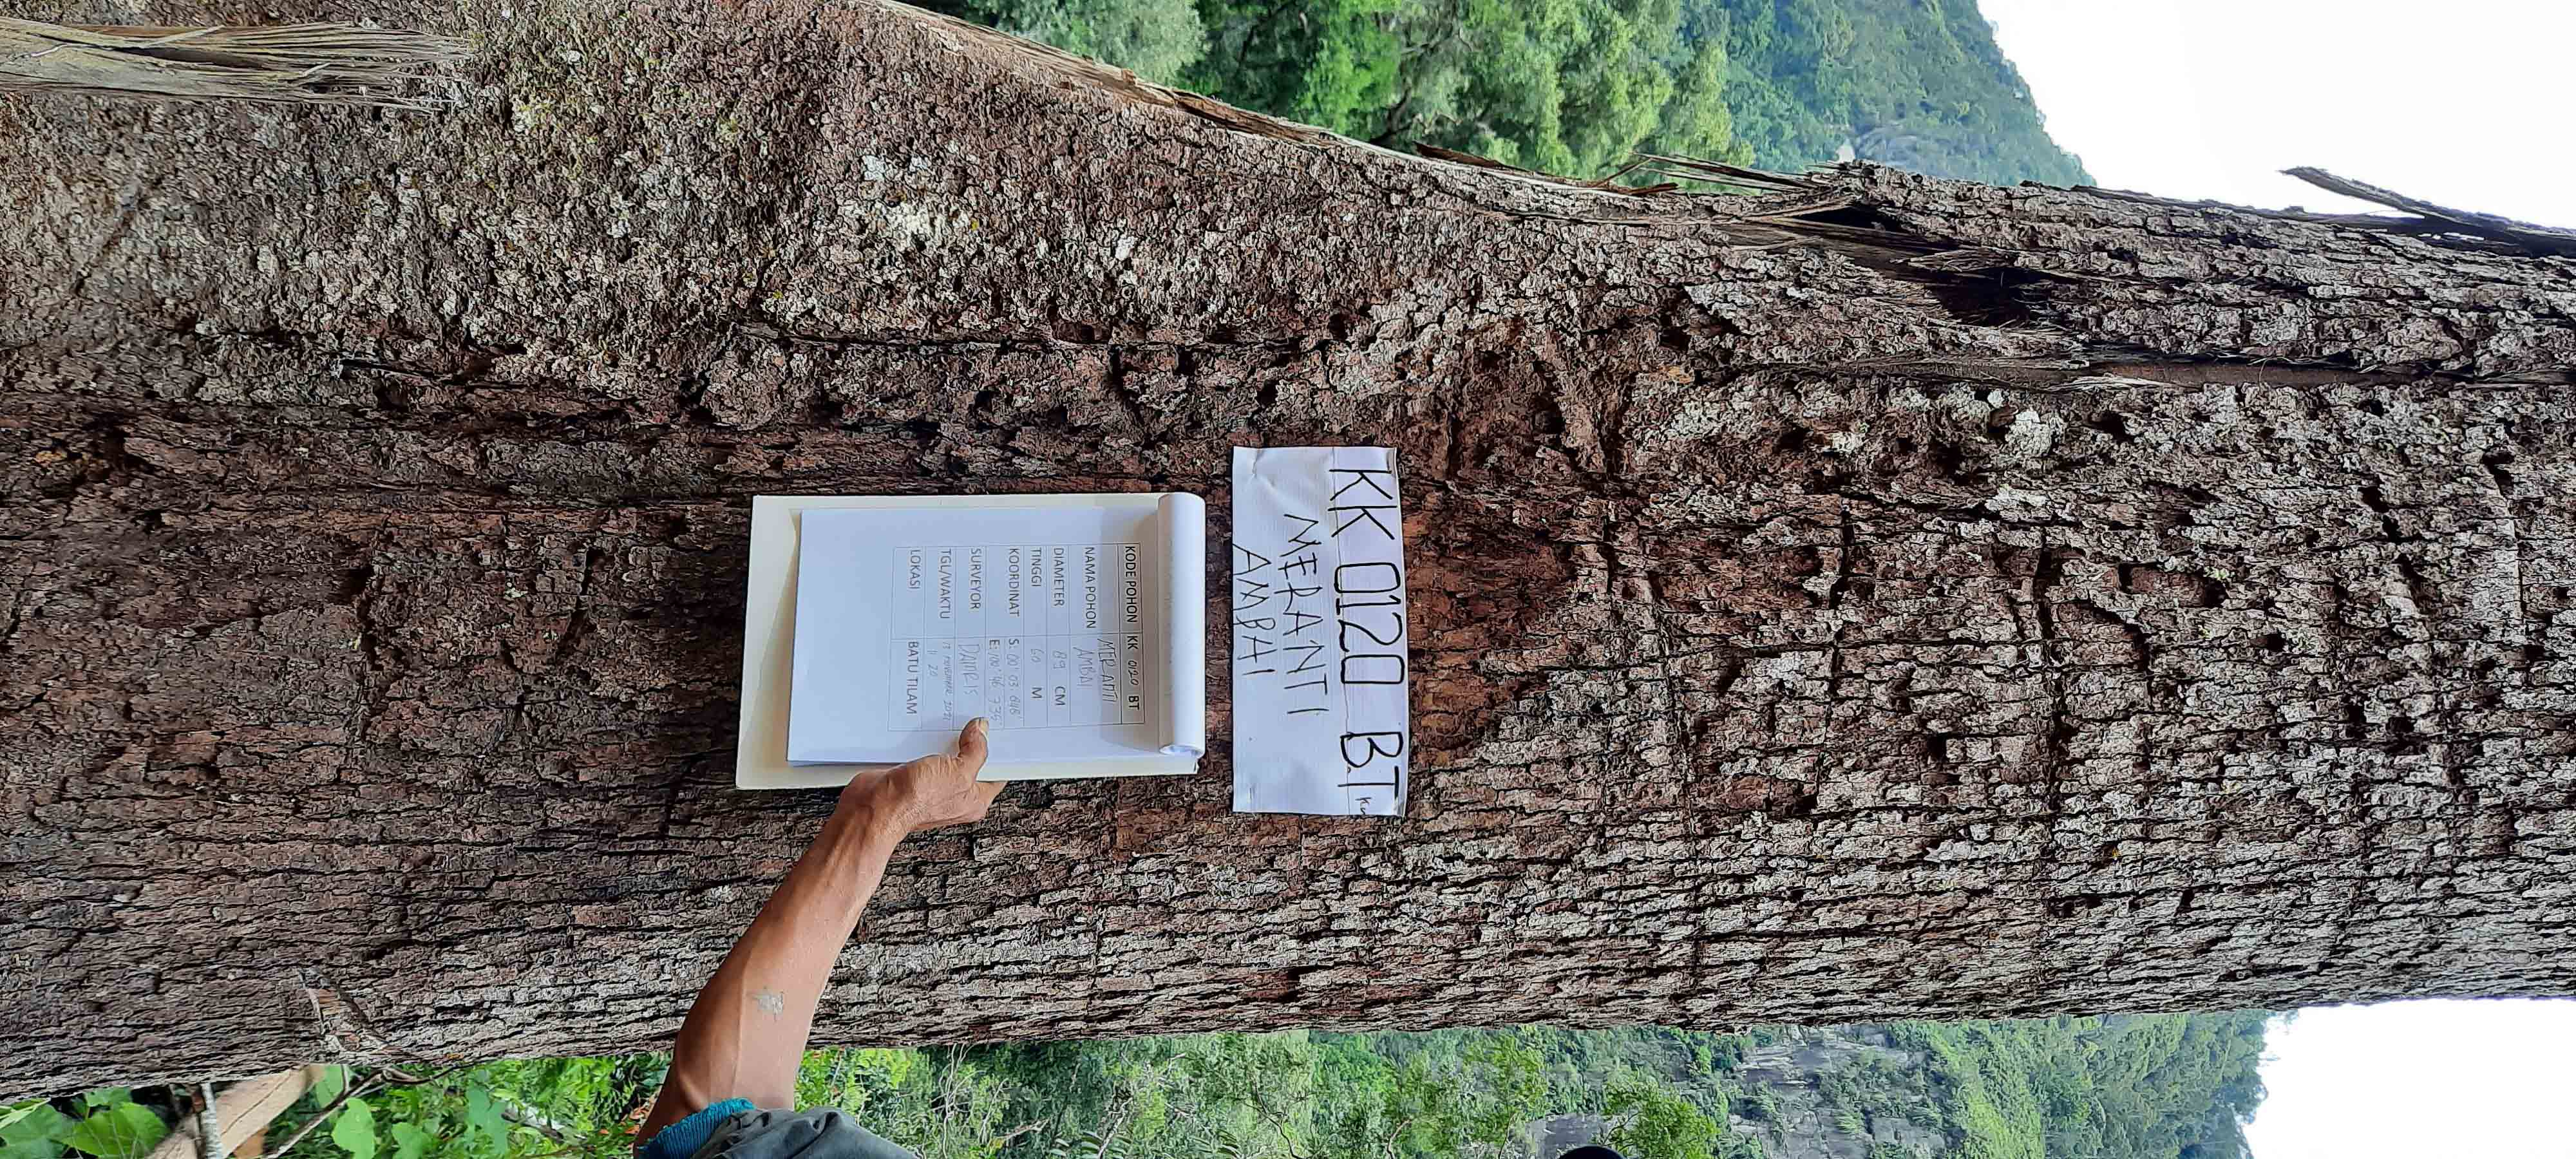 KK 0120 BT
MERANTI
AMBAI
KODE POHON KK 0120 BT
NAMA POHON MERANTI
AMBAI
DIAMETER 89 CM
TINGGI 60 M
KOORDINAT S: 00 03 648'
E: 100 46 735'
SURVEYOR DAIRIS
TGL/WAKTU 17 NOVEMBER 2021
11 20
LOKASI BATU TILAM